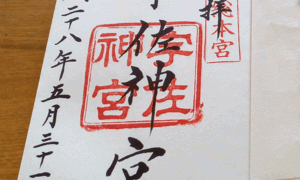 拝
本宮
佐神宮
宇佐
神宮
二十八年五月三十一